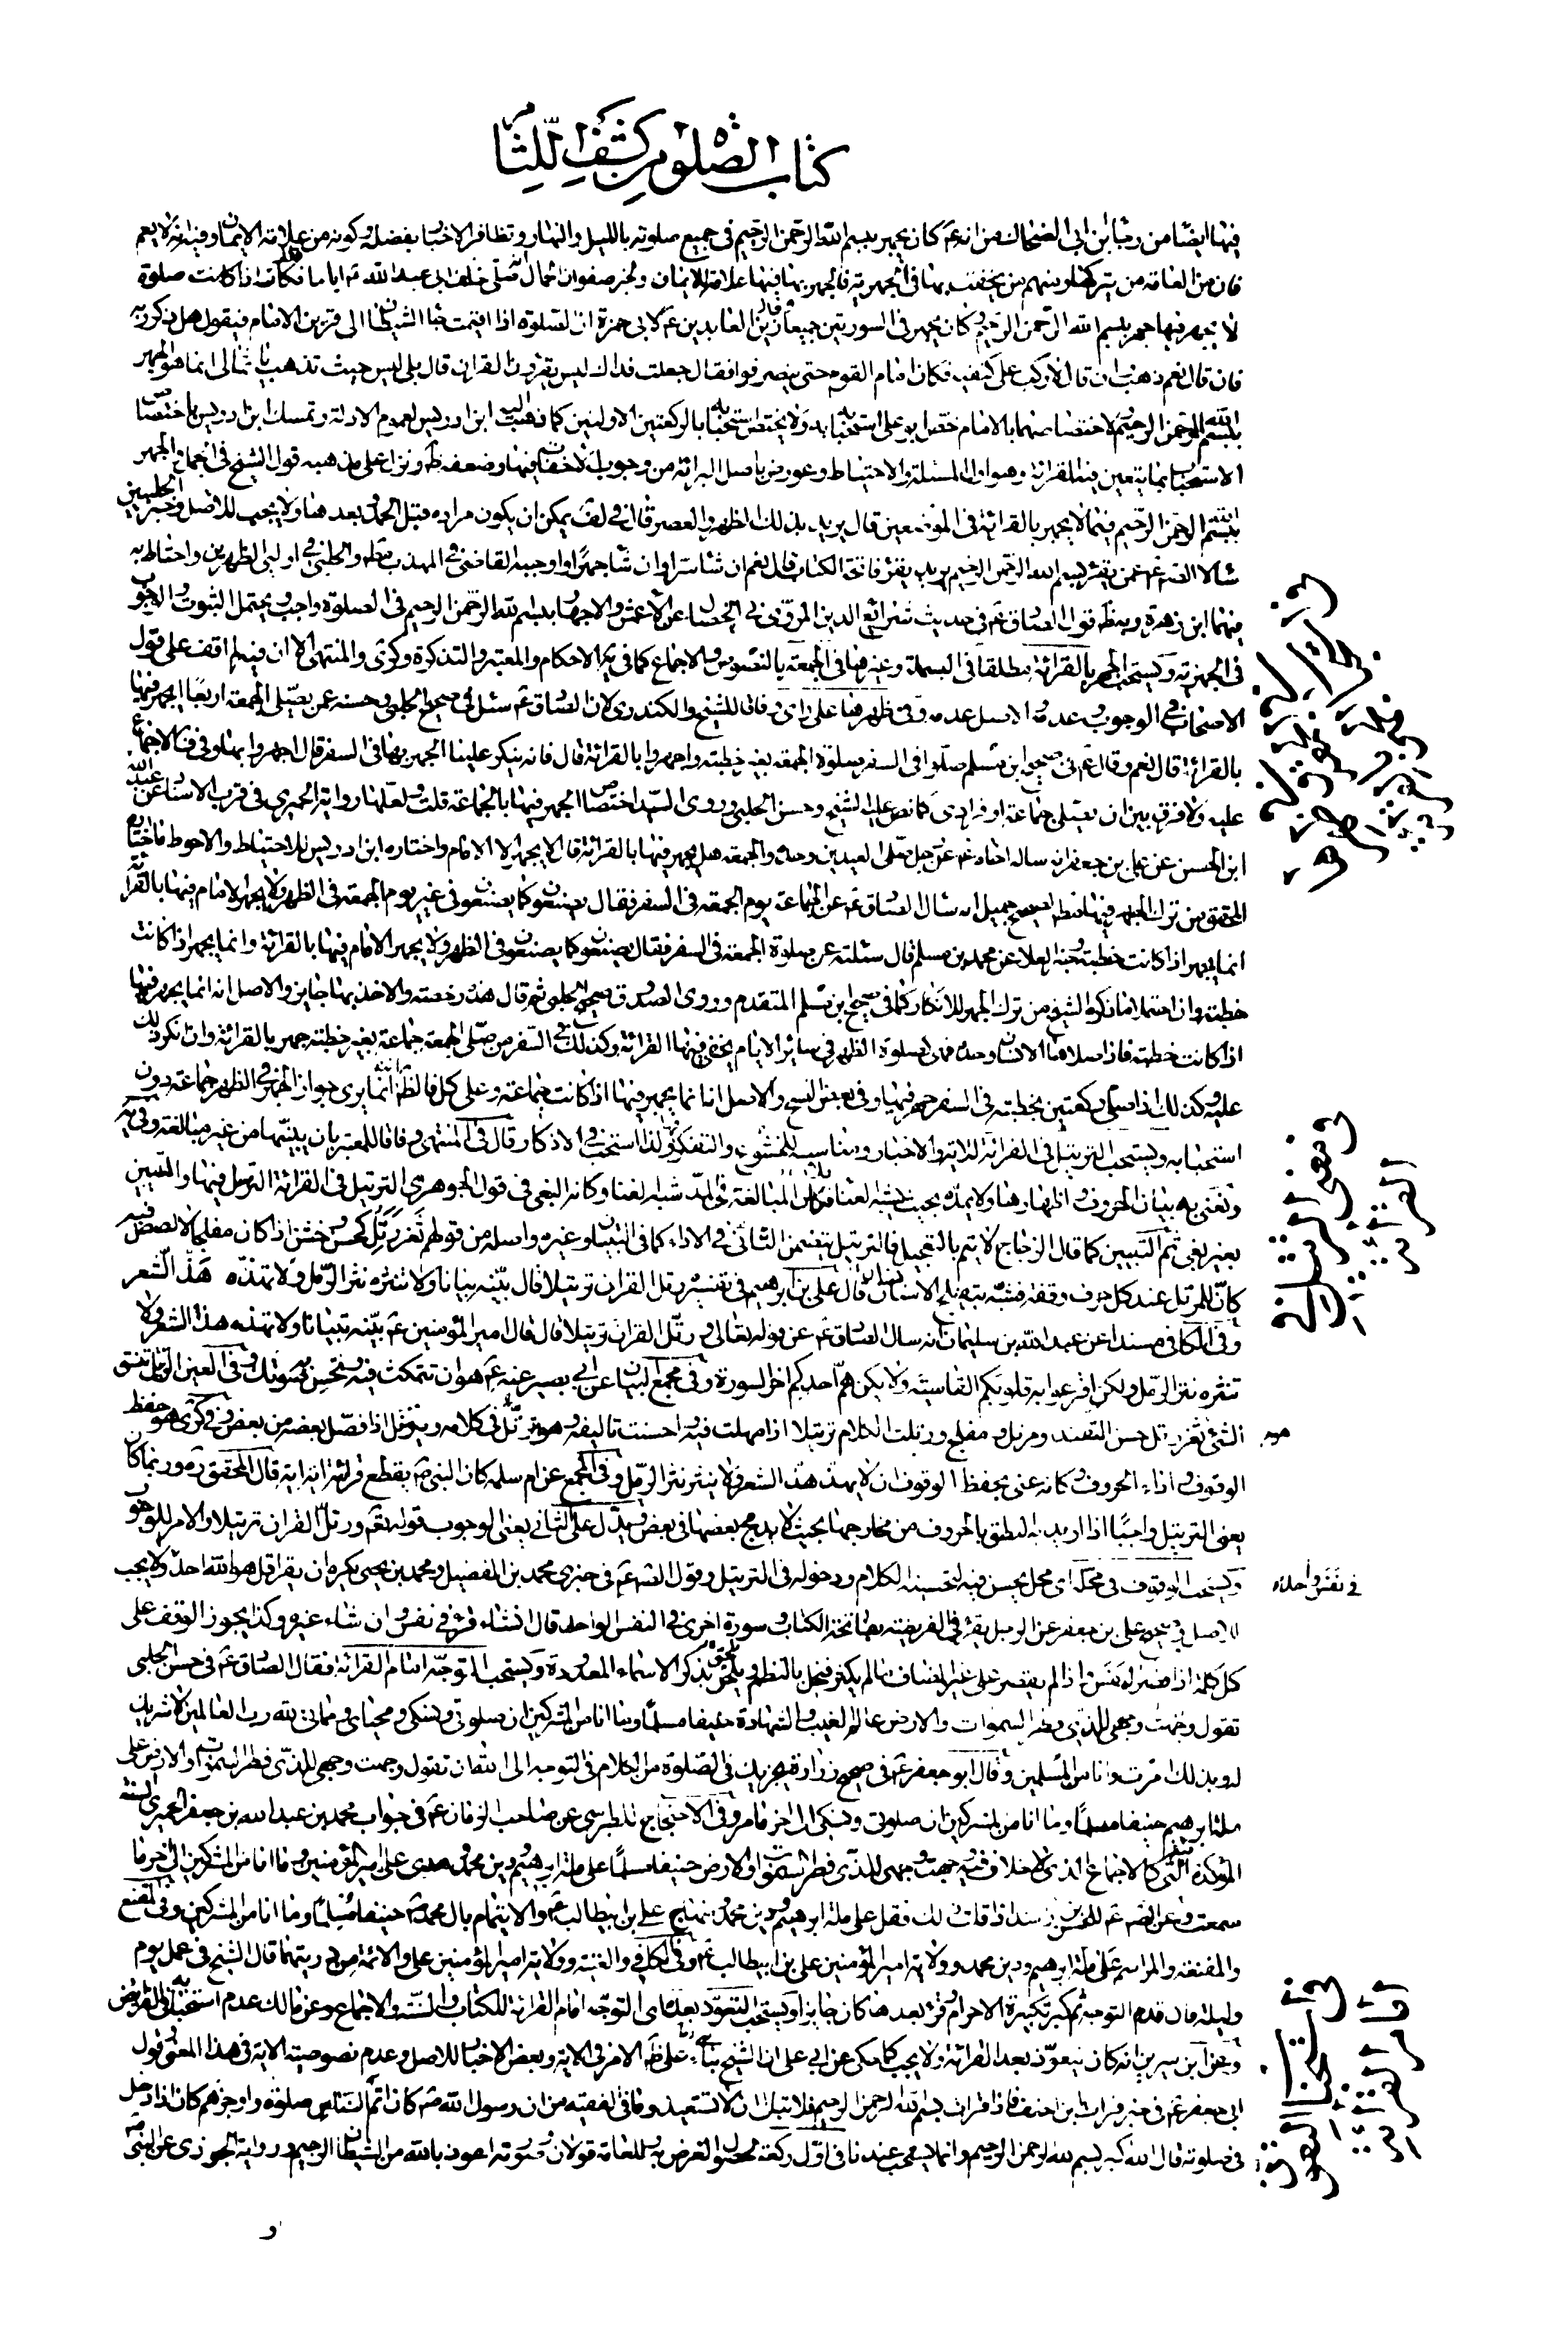 كتاب الصلوة من كشف اللثام
فيها ايضا من رجاء بن ابي الضحاك من انه ع كان يجهر ببسم الله الرحمن الرحيم في جميع صلوته بالليل والنهار وتظافر الاخبار بفضله وكونه من علامة الايمان وفيه انه لا يعم
فان من العامة من يتركها ومنهم من يخفت بها في الجهرية فالجهر بها فيها علامة الايمان ولخبر صفوان الجمال صلى خلف ابي عبد الله ع اياما فكان اذا كانت صلوة
لا يجهر فيها جهر ببسم الله الرحمن الرحيم وكان يجهر في السورتين جميعا وقال زين العابدين ع لابي حمزة ان الصلوة اذا اقيمت جاء الشيطان الى قرين الامام فيقول هل ذكر ربه
فان قال نعم ذهب وان قال لا ركب على كتفيه فكان امام القوم حتى ينصرفوا فقال جعلت فداك ليس يقرؤن القران قال بلى ليس حيث تذهب يا ثمالى انما هو الجهر
ببسم الله الرحمن الرحيم ولا اختصاص لهما بالامام ولا يختص استحبابه بالركعتين الاوليين كما ذهب اليه ابن ادريس لعموم الادلة وتمسك ابن ادريس باختصاص
الاستحباب بما يتعين فيه القرائة وهو اول المسئلة والاحتياط وعورض باصل البرائة من وجوب الاخفات فيها وضعفه ظ ونزل على مذهبه قول الشيخ في الجمل الجهر
ببسم الله الرحمن الرحيم فيما لا يجهر بالقرائة في الموضعين قال يريد بذلك الظهر والعصر قال في لف يمكن ان يكون مراده قبل الحمد وبعدها ولا يجب للاصل وخبر الحلبيين
سالا الص ع عمن يقرء ببسم الله الرحمن الرحيم يريد يقرء فاتحة الكتاب قال نعم ان شاء سرا وان شاء جهرا واوجبه القاضي في المهذب مط والحلبي في اوليي الظهرين واحتاط به
فيهما ابن زهرة وينظر قول الصادق ع في حديث شرائع الدين المروي في الخصال عن الاعمش والاجهار ببسم الله الرحمن الرحيم في الصلوة واجب ويحتمل الثبوت والوجوب
في الجهرية ويستحب الجهر بالقرائة مطلقا في البسملة وغيرها في الجمعة بالنصوص والاجماع كما في نهاية الاحكام والمعتبر والتذكرة وكرى والمنتهى الا ان فيه لم اقف على قول
الاصحاب في الوجوب وعدمه والاصل عدمه وفي ظهرها على راى وفاقا للشيخ والكندري لان الصادق ع سئل في صحيح الحلبي وحسنه عمن يصلي الجمعة اربعا ايجهر فيها
بالقرائة قال نعم وقال ع في صحيح ابن مسلم صلوا في السفر صلوة الجمعة بغير خطبة واجهروا بالقرائة قال فانه ينكر علينا الجهر بها في السفر قال اجهروا بها وفي ف الاجماع
عليه ولا فرق بين ان يصلي جماعة او فرادى كما نص عليه الشيخ وحسن الحلبي وروى السيد اختصاص الجهر فيها بالجماعة قلت ولعلها رواية الحميري في قرب الاسناد عن عبد الله
ابن الحسن عن علي بن جعفر انه ساله اخاه ع عن رجل صلى العيدين وحده والجمعة هل يجهر فيهما بالقرائة قال لا يجهر الا الامام واختاره ابن ادريس للاحتياط والاحوط ما اختاره
المحقق من ترك الجهر فيها مط لصحيح جميل انه سال الصادق ع عن الجماعة يوم الجمعة في السفر فقال يصنعون كما يصنعون في غير يوم الجمعة في الظهر ولا يجهر الامام فيها بالقرائة
انما يجهر اذا كانت خطبة وصحيح العلاء عن محمد بن مسلم قال سئلته عن صلوة الجمعة في السفر فقال يصنعون كما يصنعون في الظهر ولا يجهر الامام فيها بالقرائة وانما يجهر اذا كانت
خطبة وان احتملا ما ذكره الشيخ من ترك الجهر للانكار كما في صحيح ابن مسلم المتقدم وروى الصدوق صحيح الحلبي ثم قال هذه رخصة والاخذ بها جايز والاصل انه انما يجهر فيها
اذا كانت خطبة فاذا صلاها الانسان وحده فهي كصلوة الظهر في سائر الايام يخفي فيها القرائة وكذلك في السفر من صلى الجمعة جماعة بغير خطبة جهر بالقرائة وان انكر ذلك
عليه وكذلك اذا صلى ركعتين بخطبة في السفر جهر فيها وفي بعض النسخ والاصل انه انما يجهر فيها اذا كانت جماعة وعلى كل فالظ انه انما يرى جواز الجهر في الظهر جماعة دون
استحبابه ويستحب الترتيل في القرائة للاية والاخبار ومناسبته للخشوع والتفكر ولذا استحب في الاذكار قال في المنتهى وفاقا للمعتبر بان يبينها من غير مبالغة وفي يه
ونعني به بيان الحروف واظهارها ولا يمده بحيث يشبه الغناء
بغير بغي ثم التبيين كما قال الزجاج لا يتم بالتعجيل فالترتيل يتضمن التاني في الاداء كما في التبيان وغيره واصله من قولهم ثغر رتل
كان للمرتل عند كل حرف وقفة فشبه بتفليج الاسنان قال علي بن ابرهيم في تفسيره رتل القران ترتيلا قال بينه بيانا ولا تنثره نثر الرمل ولا تهذه هذ الشعر
وفي الكافي مسندا عن عبد الله بن سليمان انه سال الصادق ع عن قوله تعالى ورتل القران ترتيلا قال قال امير المؤمنين ع بينه تبيانا ولا تهذه هذ الشعر ولا
تنثره نثر الرمل ولكن افزعوا به قلوبكم القاسية ولا يكن هم احدكم اخر السورة وفي مجمع البيان عن ابي بصير عنه ع هو ان تتمكث فيه وتحسن به صوتك وفي العين الرتل تنسق
الشئ وثغر رتل حسن التنضد ومرتل ومفلج ورتلت الكلام ترتيلا اذا امهلت فيه واحسنت تاليفه وهو يترتل في كلامه ويترسل اذا فصل بعضه من بعض وفي كرى هو حفظ
الوقوف واداء الحروف وكانه عنى بحفظ الوقوف ان لا يهذ هذ الشعر ولا ينثر نثر الرمل وفي المجمع عن ام سلمه كان النبي ص يقطع قرائته اية اية قال المحقق ره وربما كان
يعني الترتيل واجبا اذا اريد به النطق بالحروف من مخارجها بحيث لا يدمج بعضها في بعض ويدل على الثاني يعني الوجوب قوله تعم ورتل القران ترتيلا والامر للوجوب
ويستحب الوقوف في محله اى محل يحسن فيه لتحسينه الكلام ودخوله في الترتيل وقول الص ع في خبري محمد بن الفضيل ومحمد بن يحيى يكره ان يقرا قل هو الله احد
في نفس واحد
ولا يجب
للاصل وصحيح علي بن جعفر عن الرجل يقرء في الفريضة بفاتحة الكتاب وسورة اخرى في النفس الواحد قال ان شاء قرء في نفس وان شاء غيره وكذا يجوز الوقف على
كل كلمة اذا قصر له نفس واذا لم يقصر على غير المضاف ما لم يكثر فيخل بالنظم ويلحق بذكر الاسماء المعدودة ويستحب التوجه امام القرائة فقال الصادق ع في حسن الحلبي
تقول وجهت وجهي للذي فطر السموات والارض عالم الغيب والشهادة حنيفا مسلما وما انا من المشركين ان صلوتي ونسكي ومحياى ومماتي لله رب العالمين لا شريك
له وبذلك امرت وانا من المسلمين وقال ابو جعفر ع في صحيح زرارة يجزيك في الصلوة من الكلام في التوجه الى الله ان تقول وجهت وجهي للذي فطر السموات والارض على
ملة ابرهيم حنيفا مسلما وما انا من المشركين ان صلوتي ونسكي الى اخر ما مر وفي الاحتجاج للطبرسي عن صاحب الزمان ع في جواب محمد بن عبد الله بن جعفر الحميري السنة
المؤكدة فيه التي كالاجماع الذي لا خلاف فيه وجهت وجهي للذي فطر السموات والارض حنيفا مسلما على ملة ابرهيم ودين محمد وهدى علي امير المؤمنين وما انا من المشركين الى اخر ما
سمعت وعن الص ع للحسن بن راشد اذا قلت ذلك فقل على ملة ابرهيم ودين محمد ومنهاج علي بن ابيطالب ع والايتمام بال محمد ص حنيفا مسلما وما انا من المشركين وفي المقنع
والمقنعة والمراسم على ملة ابرهيم ودين محمد وولاية امير المؤمنين علي بن ابيطالب ع وفي الكافي والغنية وولاية امير المؤمنين علي والائمة من ذريتهما قال الشيخ في عمل يوم
وليلة فان قدم التوجه ثم كبر تكبيرة الاحرام وقرء بعدها كان جايزا ويستحب التعوذ بعده اى التوجه امام القرائة للكتاب والسنة والاجماع وعن مالك عدم استحبابه في الفرائض
وعن ابن سيرين انه كان يتعوذ بعد القرائة ولا يجب كما حكى عن ابي علي ابن الشيخ بناء على ظ الامر في الاية وبعض الاخبار للاصل وعدم نصوصية الاية في هذا المعنى وقول
ابي جعفر ع في خبر فرات بن احنف فاذا قرات بسم الله الرحمن الرحيم فلا تبال ان لا تستعيذ وما في الفقيه من ان رسول الله ص كان اتم الناس صلوة واوجزهم كان اذا دخل
في صلوته قال الله اكبر بسم الله الرحمن الرحيم وانما يستحب عندنا في اول ركعة لحصول الغرض به وللعامة قول اخر وصورته اعوذ بالله من الشيطان الرجيم ورواية الجوزي عن النبي ص
في معنى الترتيل في القرائة
في استحباب التعوذ امام القرائة
و